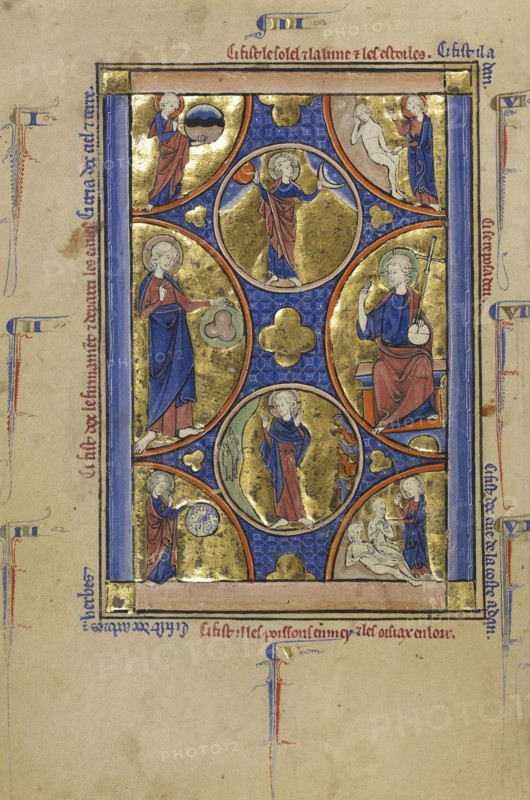 IIII
Ci fist le solel ⁊ la lune ⁊ les estoiles.
Ci fist il adan.
I
Ci cria dex ciel ⁊ terre.
VI
Ci se reposa dex.
II
Ci fist dex le firmament ⁊ depart les eaues
VII
III
Ci fist dex arbres ⁊ herbes
Ci fist dex eve de la coste adan.
Ci fist il les poissons en mer ⁊ les oisiax en lorr.
V
PHOTO12